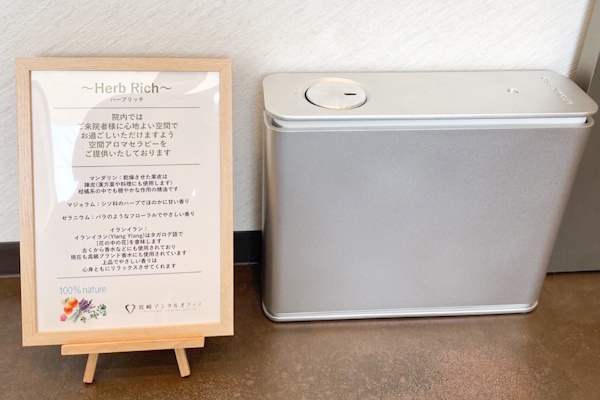 ~Herb Rich~
ハーブリッチ
院内では
ご来院者様に心地よい空間で
お過ごしいただけますよう
空間アロマセラピーを
ご提供いたしております
マンダリン：乾燥させた果皮は
陳皮(漢方薬や料理にも使用します)
柑橘系の中でも穏やかな作用の精油です
マジョラム：シソ科のハーブでほのかに甘い香り
ゼラニウム：バラのようなフローラルでやさしい香り
イランイラン：
イランイラン(Ylang Ylang)はタガログ語で
「花の中の花」を意味します
古くから香水などにも使用されており
現在も高級ブランド香水にも使用されています
上品でやさしい香りは
心身ともにリラックスさせてくれます
100% nature
宮崎デンタルオフィス